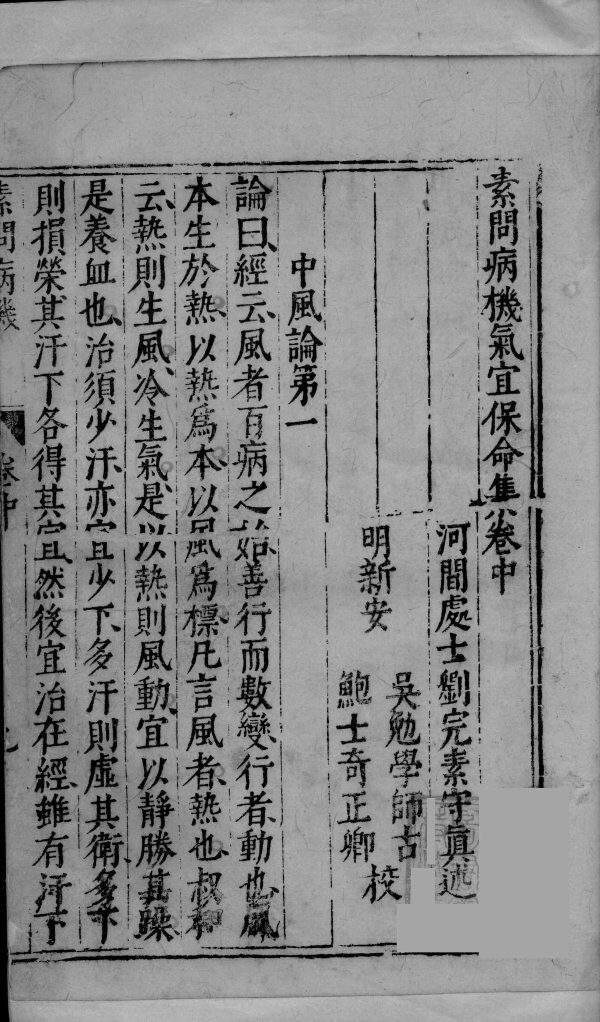 素問病機氣宜保命集卷中
河間處士劉完素守眞述
吳勉學師古
明新安
校
鮑士奇正卿
中風論第一
論曰經云風者百病之始善行而數變行者動也風
本生於熱以熱爲本以風爲標凡言風者熱也叔和
云熱則生風冷生氣是以熱則風動宜以靜勝其躁
是養血也治須少汗亦宜少下多汗則虛其衛多下
則損榮其汗下各得其宜然後宜治在經雖有汗下
素問病機
卷中